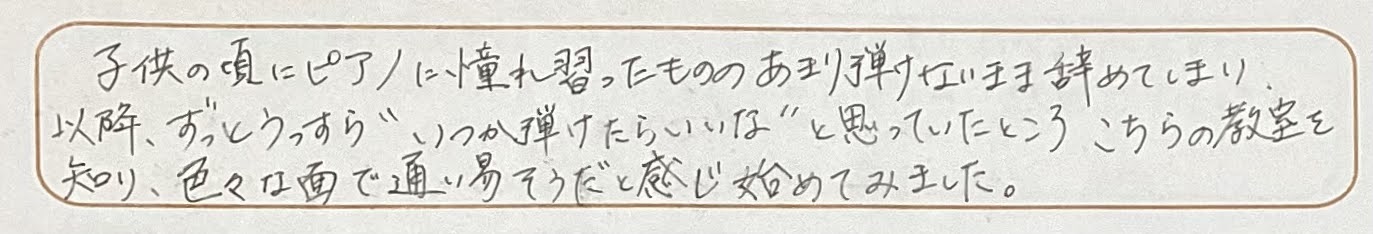 子供の頃にピアノに憧れ習ったもののあまり弾けないまま辞めてしまい、
以降、ずっとうっすら“いつか弾けたらいいな”と思っていたところ こちらの教室を
知り、色々な面で通い易そうだと感じ始めてみました。